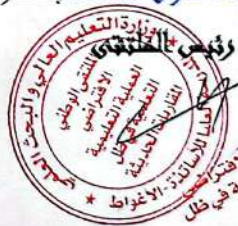 رئيس الملتقى
وزارة التعليم العالي والبحث العلمي
الملتقى الوطني
الافتراضي
العملية التعليمية
التعلمية في ظل
المقاربات الحديثة
العليا للأساتذة - الأغواط